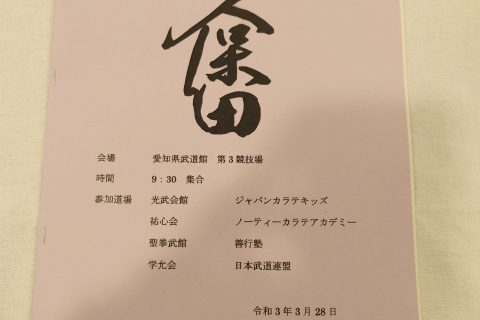 久保田
会場 愛知県武道館 第3競技場
時間 9:30 集合
参加道場 光武会館 ジャパンカラテキッズ
祐心会 ノーティーカラテアカデミー
聖拳武館 善行塾
学允会 日本武道連盟
令和3年3月28日